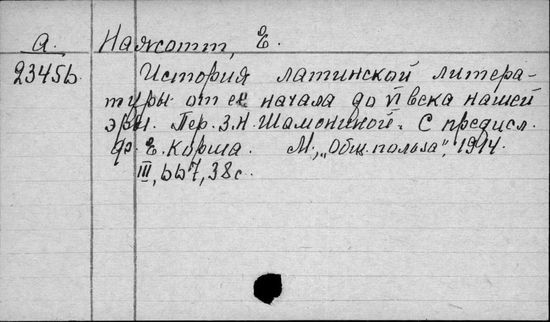 А. Нажотт, Е.
23456. История латинской литера-
туры от ее начала до VI века нашей
эры. Пер. З.Н. Шамониной. С предисл.
Ф. Е. Корша. М., "Общ. польза", 1914.
III, 667, 38 с.